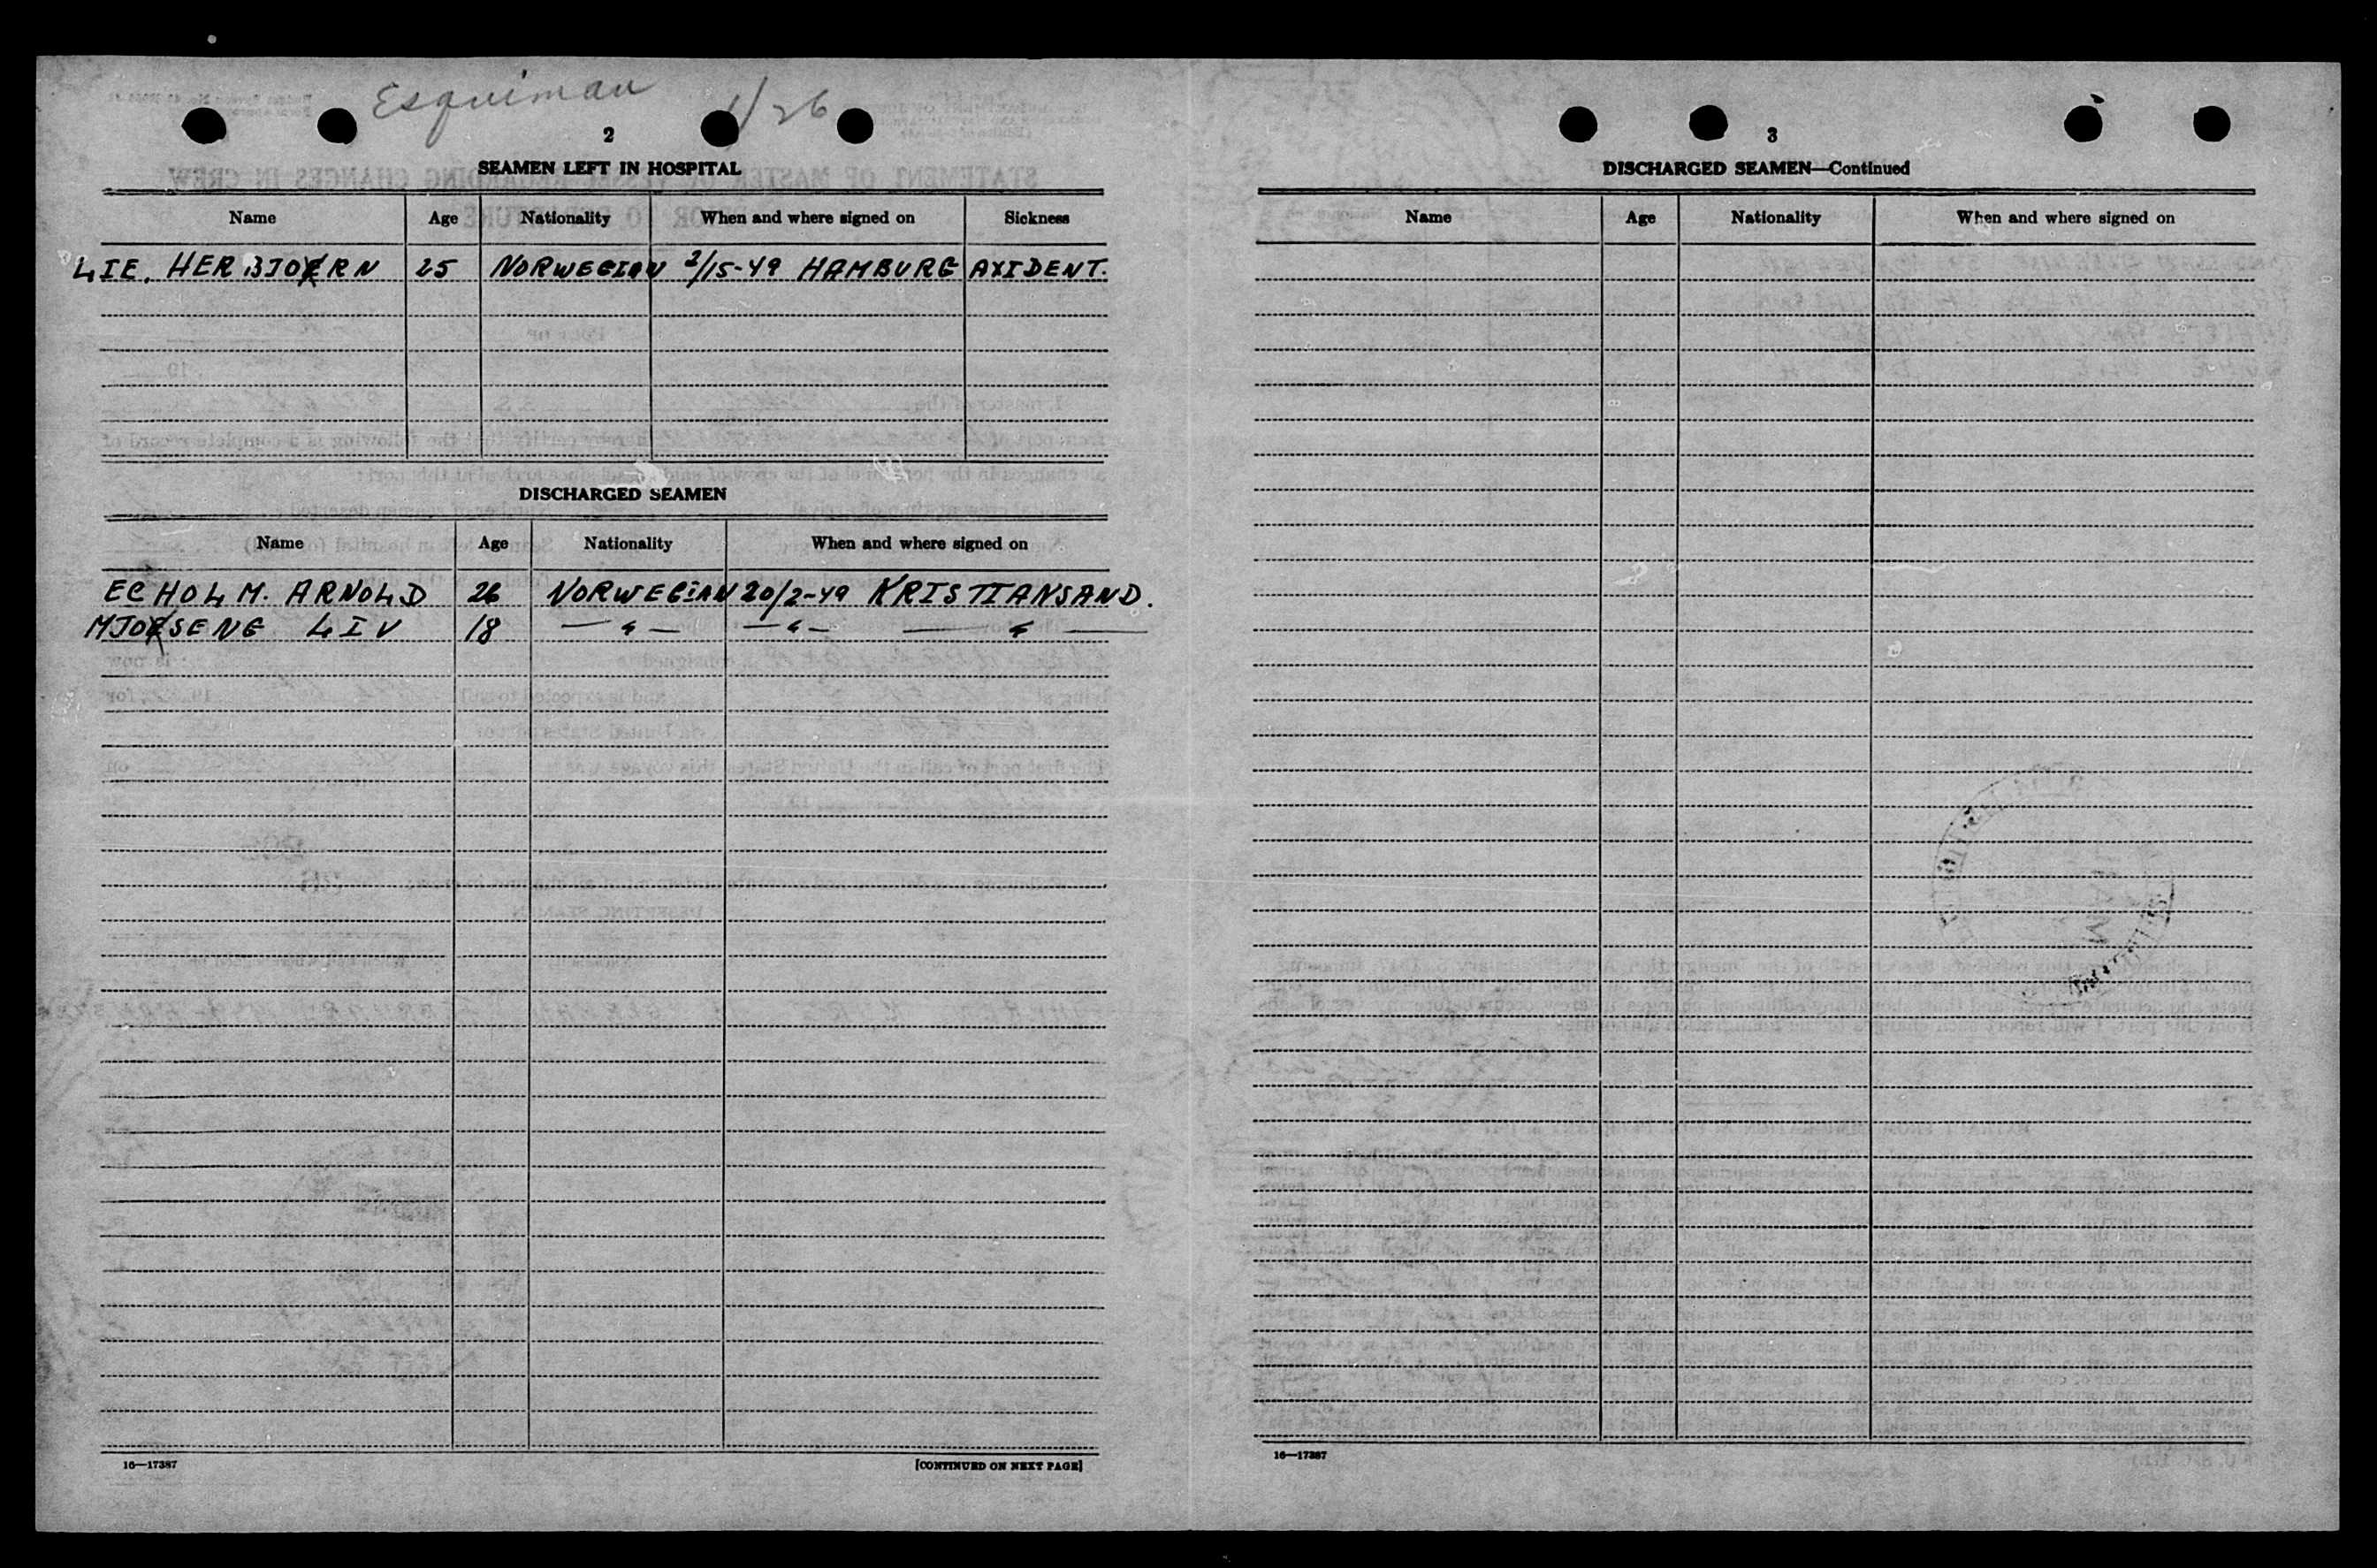 Esquimau 1/26
2
SEAMEN LEFT IN HOSPITAL
Name Age Nationality When and where signed on Sickness
LIE. HERBJOERN 25 NORWEGIAN 2/15-49 HAMBURG AXIDENT.
DISCHARGED SEAMEN
Name Age Nationality When and where signed on
ECHOLM. ARNOLD 26 NORWEGIAN 20/2-49 KRISTIANSAND.
MJOESENG LIV 18 — " — — " — — " —
16—17387 [CONTINUED ON NEXT PAGE]
3
DISCHARGED SEAMEN—Continued
Name Age Nationality When and where signed on
16—17387